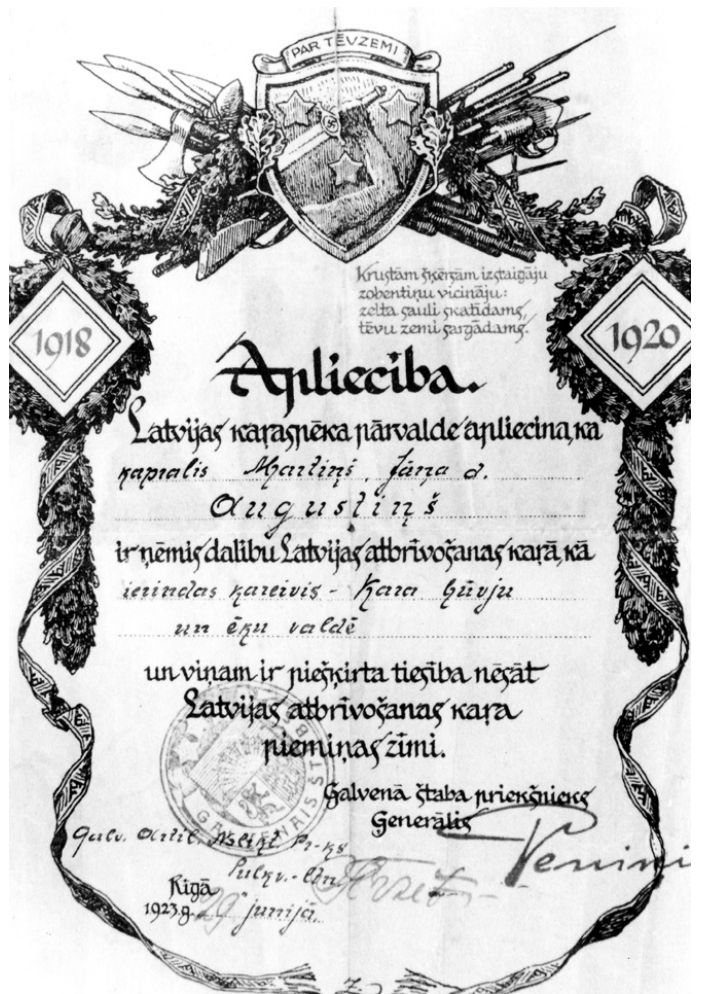 PAR TĒVZEMI
Krustām šķērsām izstaigāju
zobentiņu vicināju:
zelta sauli skatīdams,
tēvu zemi sargādams.
1918
1920
Apliecība.
Latvijas karaspēka pārvalde apliecina, ka
kaprālis Martiņš, Jāņa d.
Augustiņš
ir ņēmis dalību Latvijas atbrīvošanas karā, kā
ierindas kareivis - Kara būvju
un ēku valdē
un viņam ir piešķirta tiesība nēsāt
Latvijas atbrīvošanas kara
piemiņas zīmi.
Galvenā štaba priekšnieks
Ģenerālis
Galv. Artil. Pr-ks
Pulkv.-ltn.
Rīgā
1923.g. 29 junijā.